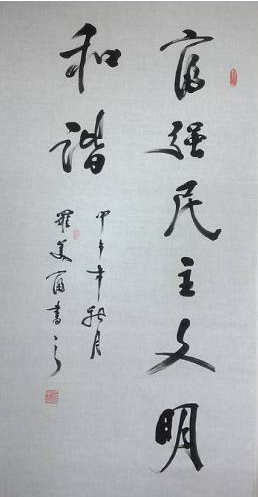 富强民主文明
和谐
甲午年秋月
罗美富书之